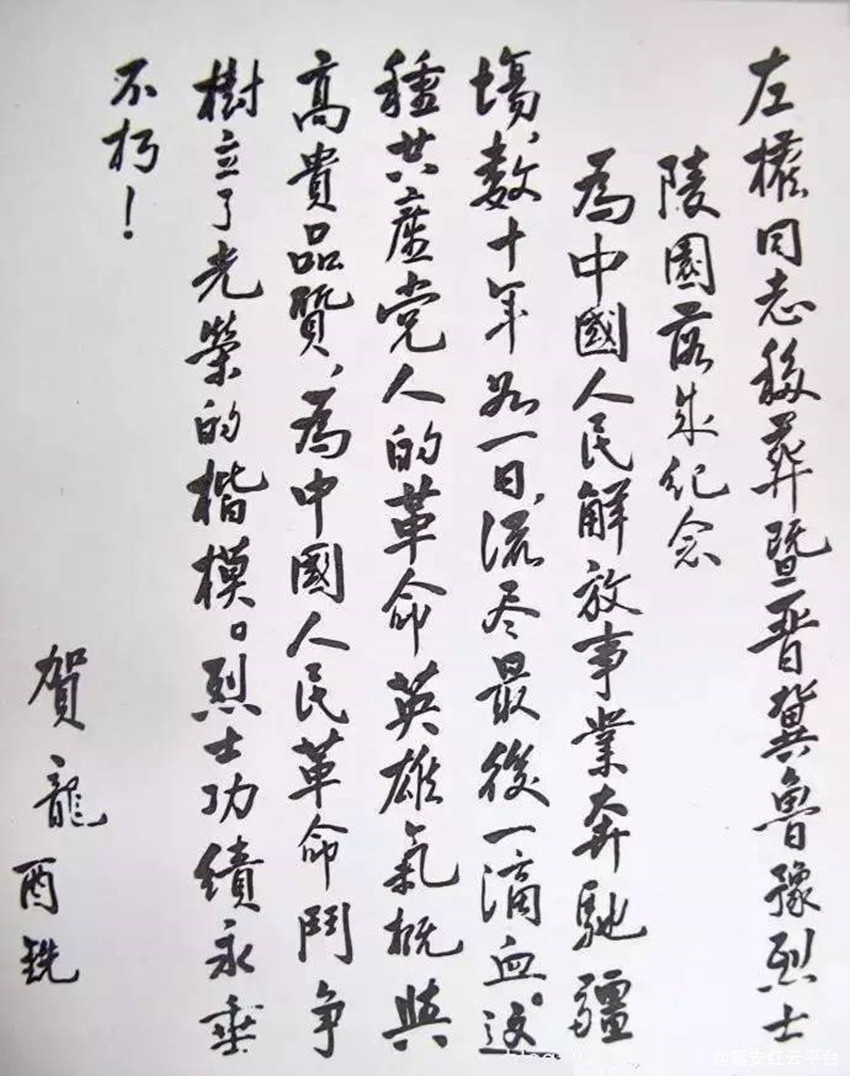 左權同志移葬暨晋冀魯豫烈士
陵園落成纪念
為中國人民解放事業奔馳疆
場，数十年如一日，流尽最後一滴血。这
種共產党人的革命英雄氣概與
高貴品質，為中國人民革命鬥争
樹立了光榮的楷模。烈士功績永垂
不朽！
賀龍
酉銑
@延安红云平台